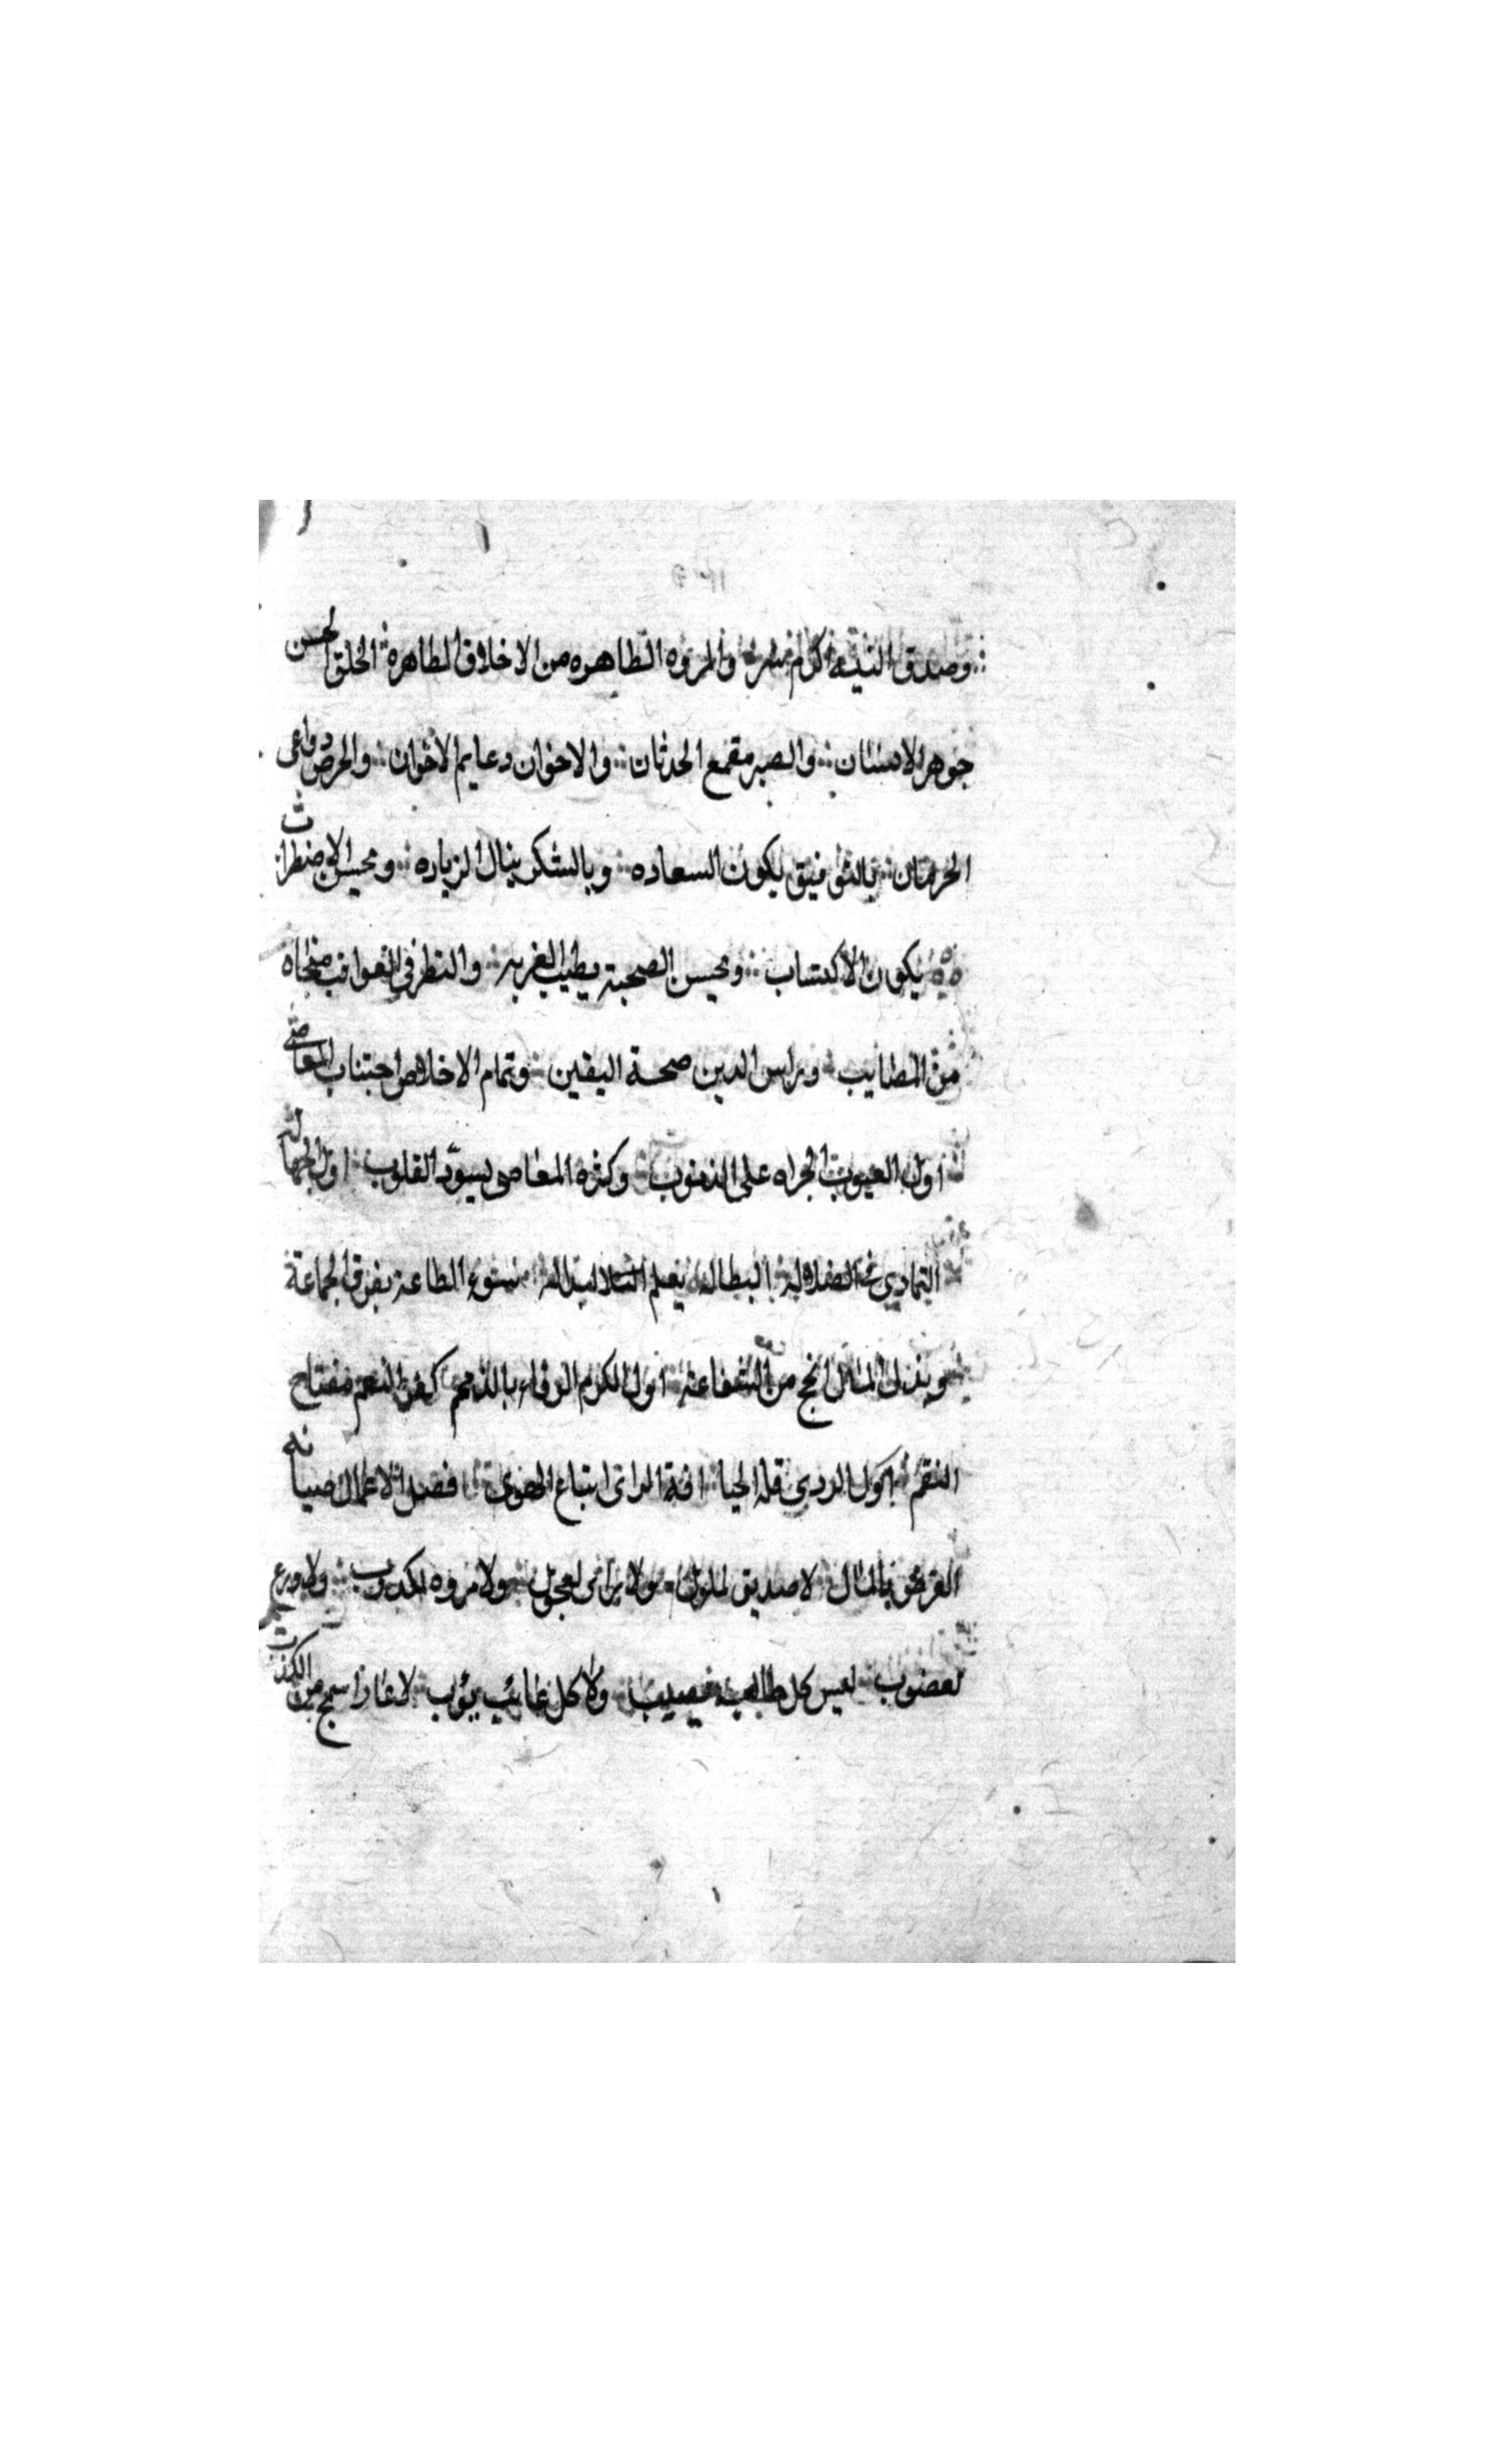 وصدق النيه اكرم والمروه الطاهره من الاخلاق الطاهرة الخلق الحسن
جوهر الانسان والصبر مقمع الحدثان والاخوان دعايم لاخوان والحرص دواعى
الحرمان بالتوفيق يكون السعاده وبالشكر ينال الزياده وبحسن الاضطراب
يكون الاكتساب وبحسن الصحبة يطيب الغربه والنظر في العواقب منجاه
من المطايب وراس الدين صحة اليقين وتمام الاخلاص اجتناب المعاصى
اول العيوب الجراه على الذنوب وكثره المعاصى يسود القلوب اول الجهاله
التمادي في الضلاله البطاله الطاعة يفرق الجماعة
وبذل المال انجح من الشفاعة اول الكرم الوفاء بالذمم كفر النعم مفتاح
النقم اول الردى قلة الحيا افة الراى اتباع الهوى افضل الاعمال صيانه
العرض بالمال لاصديق لملول ولا راى لعجول ولا مروه لكذوب ولا ورع
لغضوب ليس كل طالب نصيب ولا كل غائب يؤب لا عار اسمج من الكذب